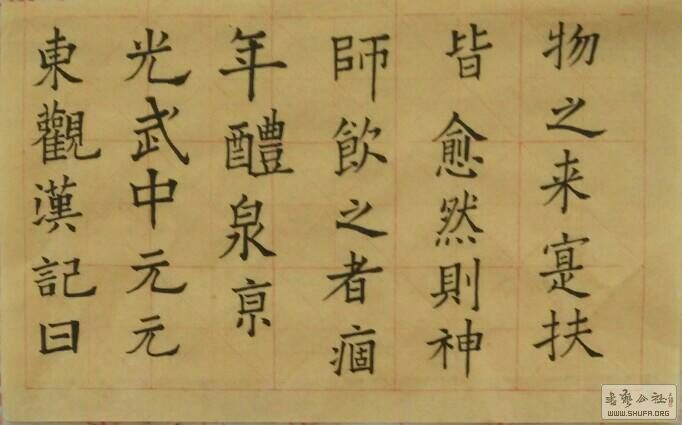 東觀漢記曰
光武中元元
年醴泉亰
師飲之者痼
皆愈然則神
物之来寔扶
书艺公社
WWW.SHUFA.ORG